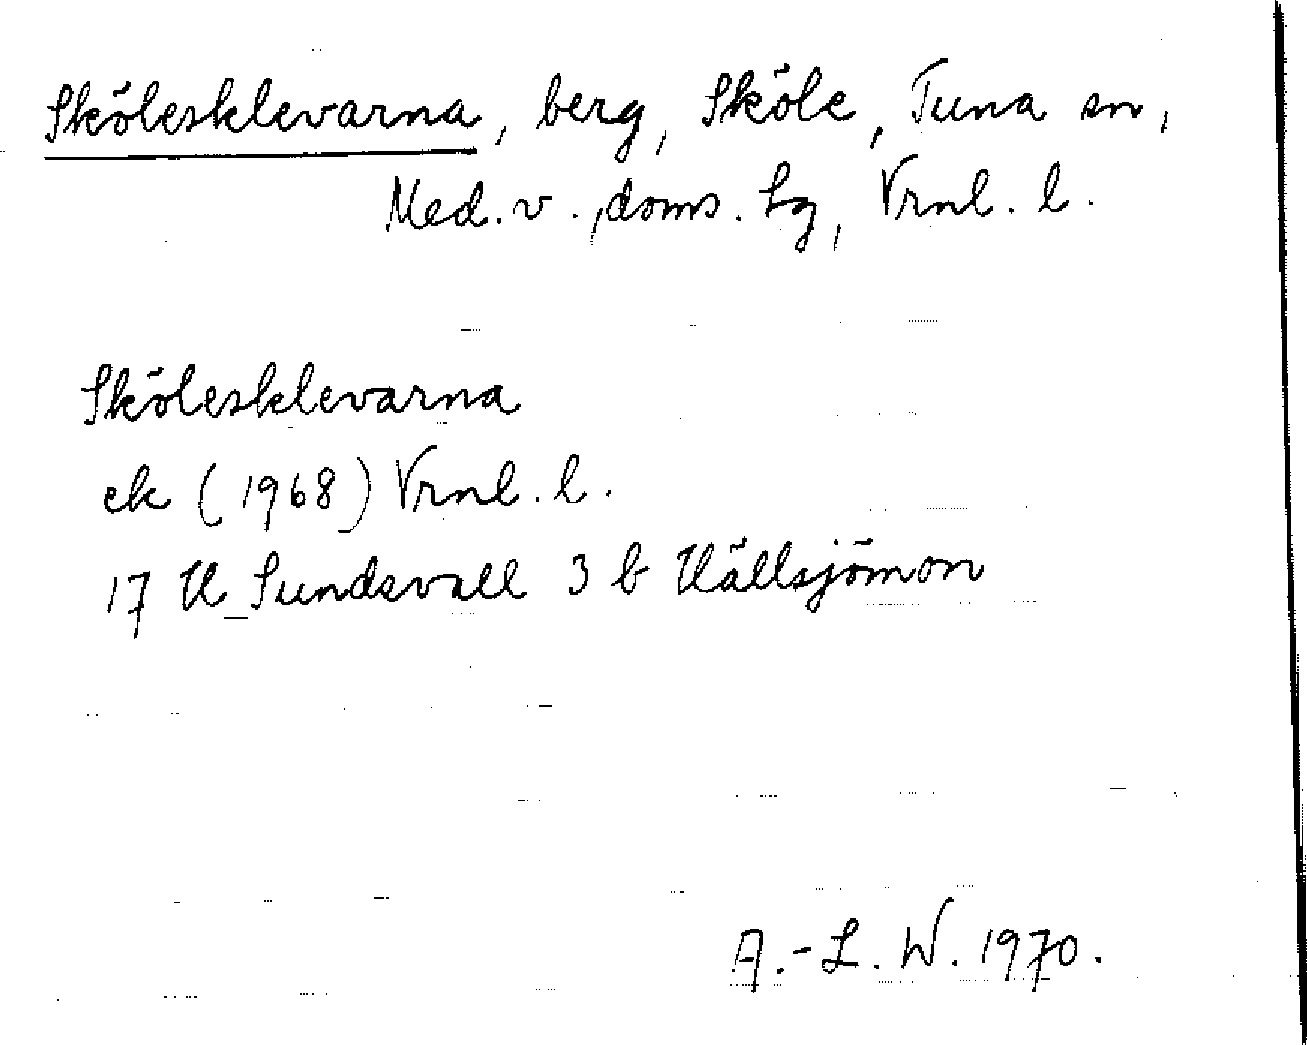 Skölesklevarna, berg, Sköle, Tuna sn,
Med. v., doms. hg, Vrnl. l.
Skölesklevarna
ek (1968) Vrnl. l.
17 H Sundsvall 3 b Hällsjömon
A.-L. W. 1970.